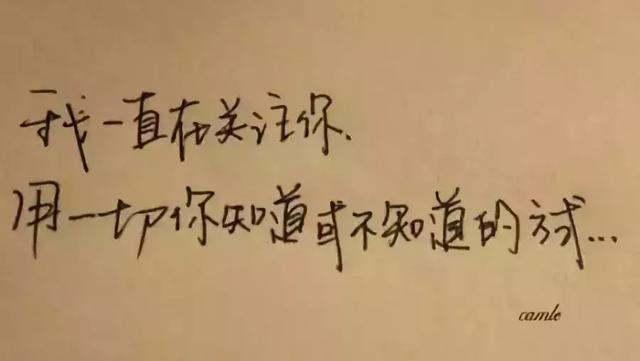 我一直在关注你、
用一切你知道或不知道的方式...
camle